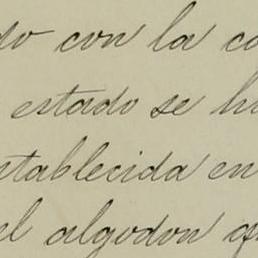 do con la co
estado se hu
stablecida en
el algodon q